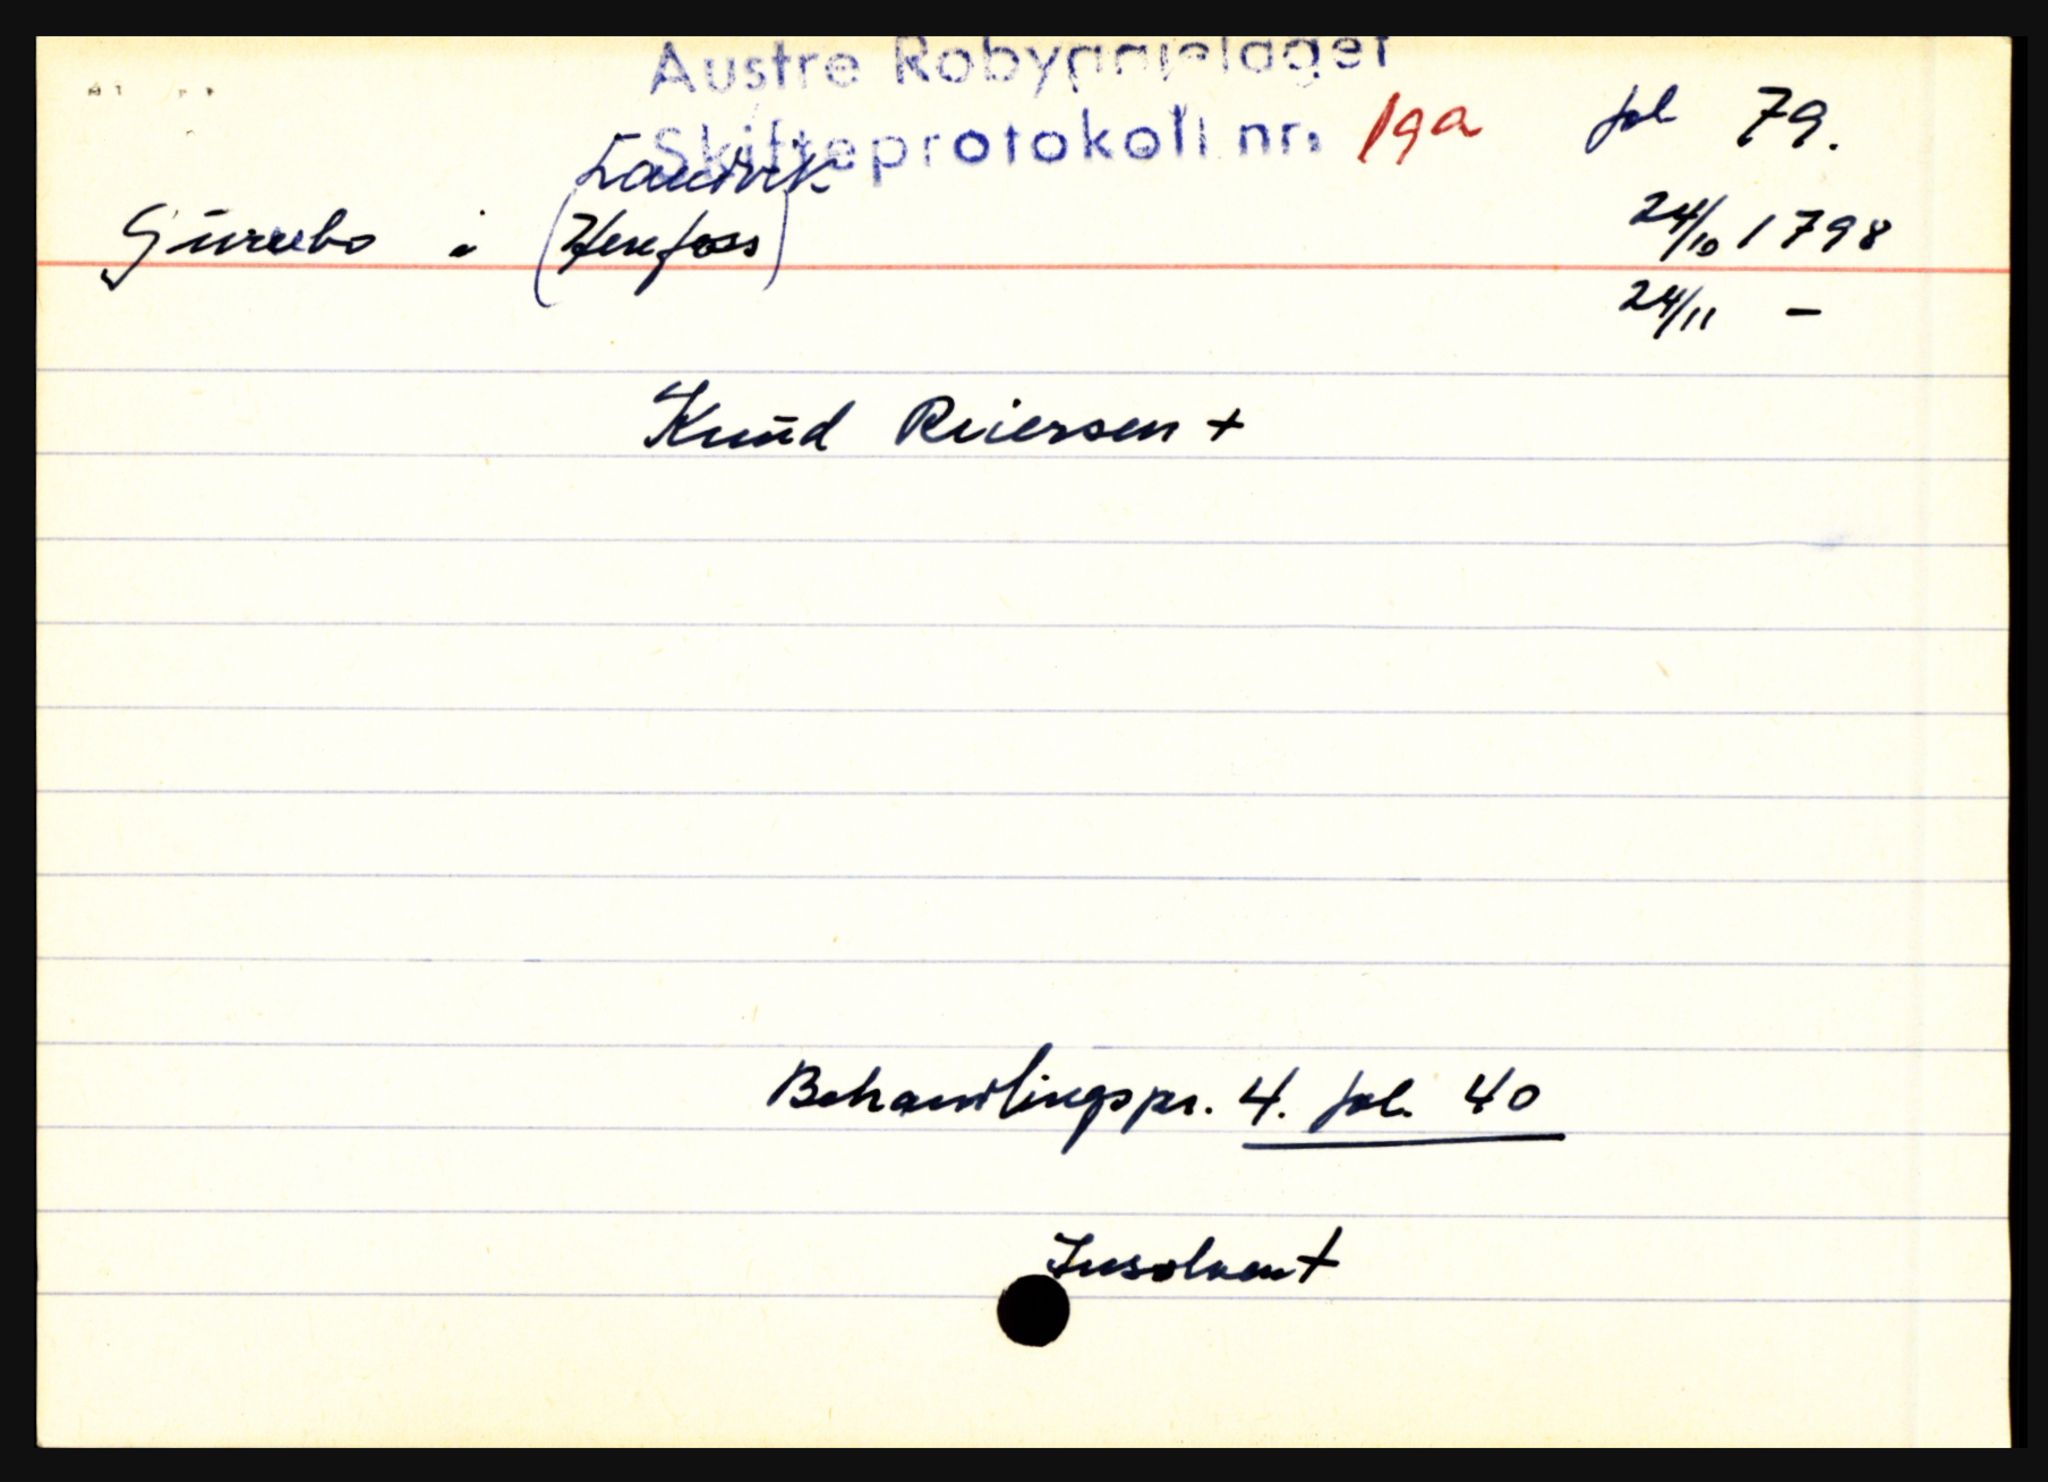 Austre Robyggjelaget
Skifteprotokoll nr. 19a fol 79.
Landvik
Gurebo i (Herefoss) 24/10 1798
24/11 -
Knud Reiersen +
Behandlingspr. 4. fol. 40
Insolvent